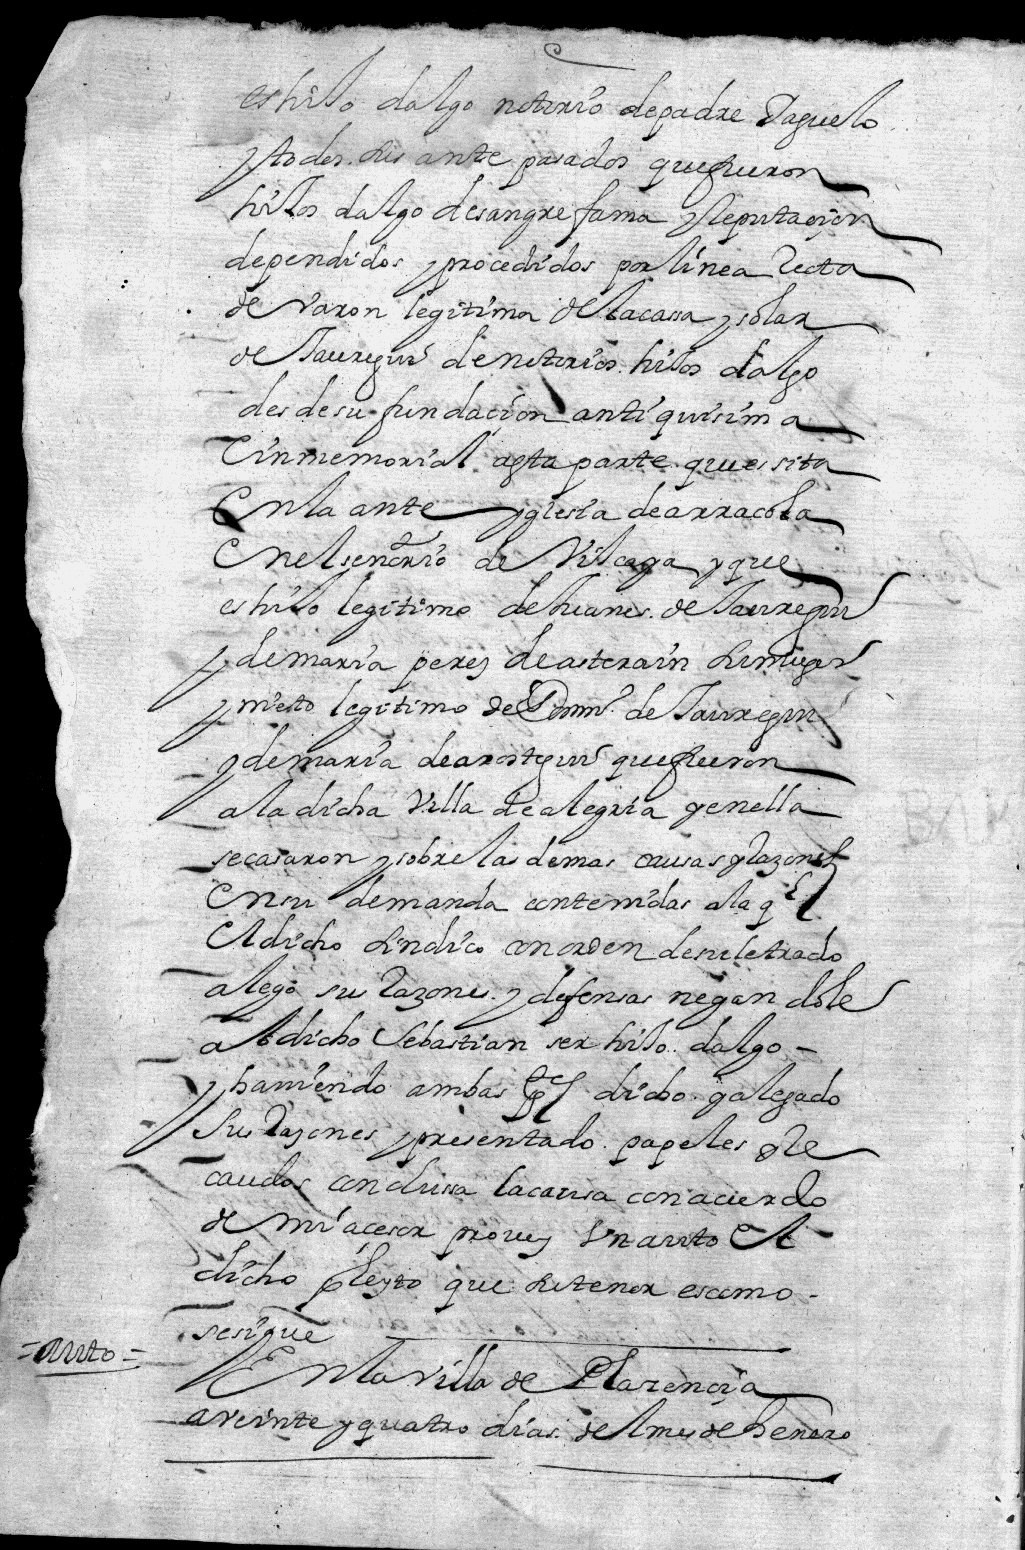 es hijo dalgo notorio de padre y aguelo
y todos sus antepasados que fueron
hijos dalgo de sangre fama y Reputacion
dependidos y procedidos por linea Recta
de varon legitima de la cassa y solar
de Jauregui de notorios hijos dalgo
desde su fundaçion antiquisima
E inmemorial a esta parte que es sita
En la ante yglesia de arracola
En el senorio de Viscaya y que
es hijo legitimo de Juanes de Jauregui
y de maria peres de asterain su muger
y nieto legitimo de Domin. de Jauregui
y de maria de arostegui que fueron
a la dicha Villa de alegria y en ella
se casaron y sobre las demas causas y Razones
En su demanda contenidas a la ql
El dicho sindico con orden de su letrado
alego sus Razones y defensas negandole
al dicho Sebastian ser hijo dalgo -
y haviendo ambas ptes dicho y alegado
sus Razones y presentado papeles y Re
caudos conclussa la causa con acuerdo
de mi acesor provey Un auto El
dicho pleyto que su tenor es como -
se sigue
= auto = En la villa de Plazençia
a veinte y quatro dias del mes de henero